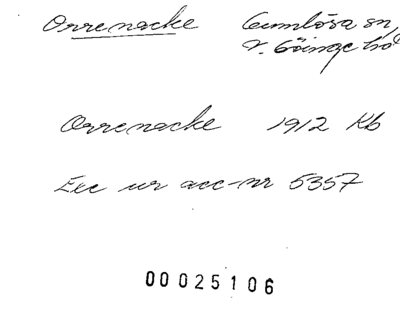 Orrenacke Gumlösa sn,
V. Göinge hd
Orrenacke 1912 Kb
Exc ur acc-nr 5357
00025106